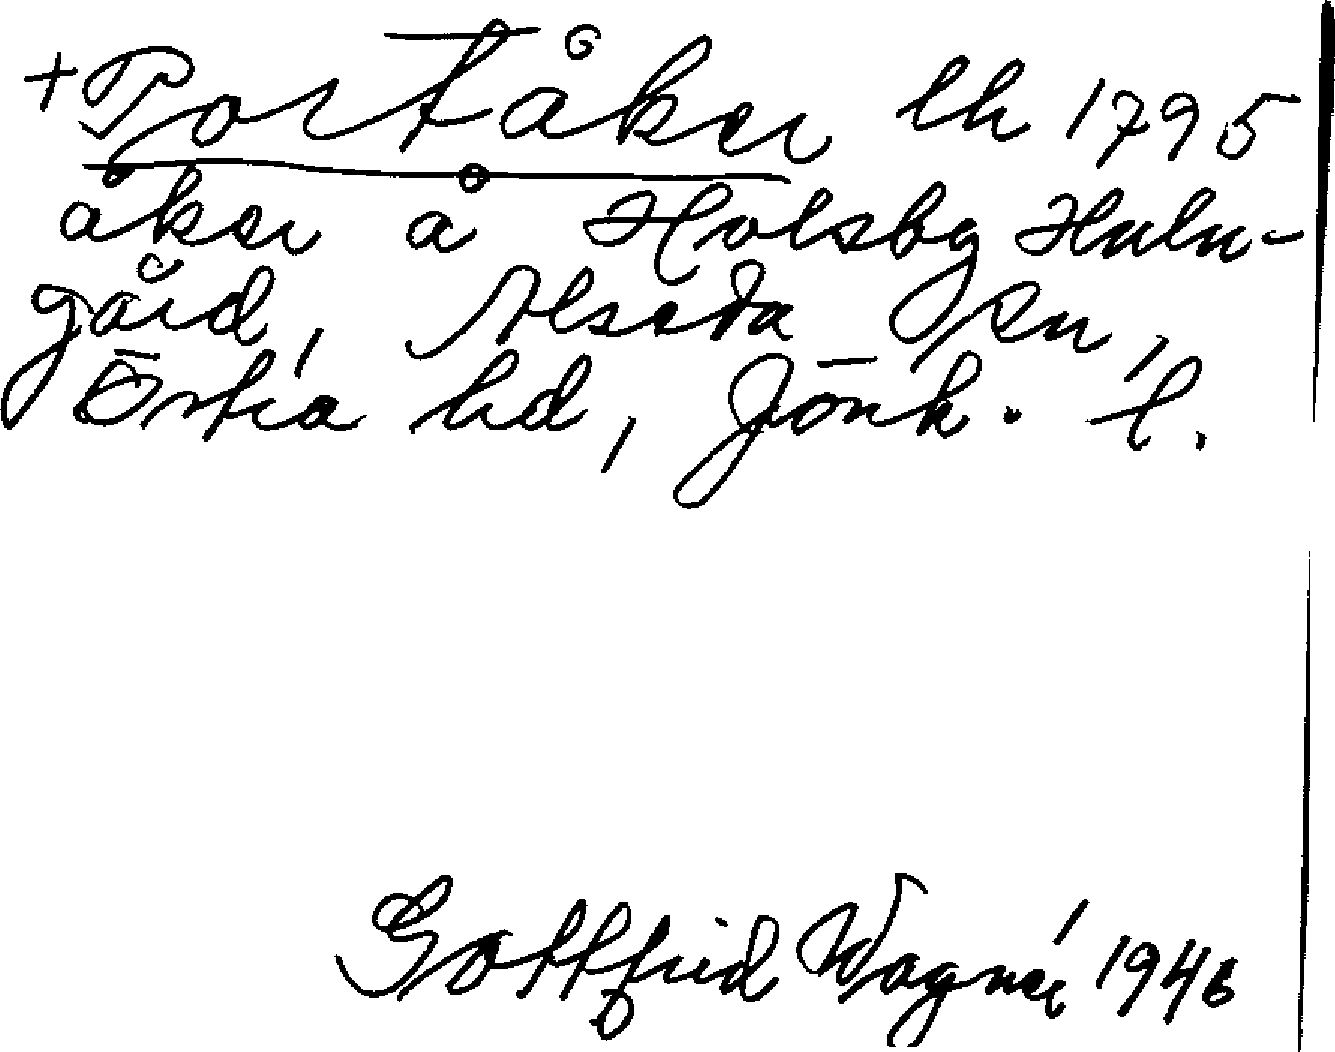 +Portåker lh 1795
åker å Holsby Huln-
gård, Alseda sn,
Östra hd, Jönk. l.
Gottfrid Wagnér 1946